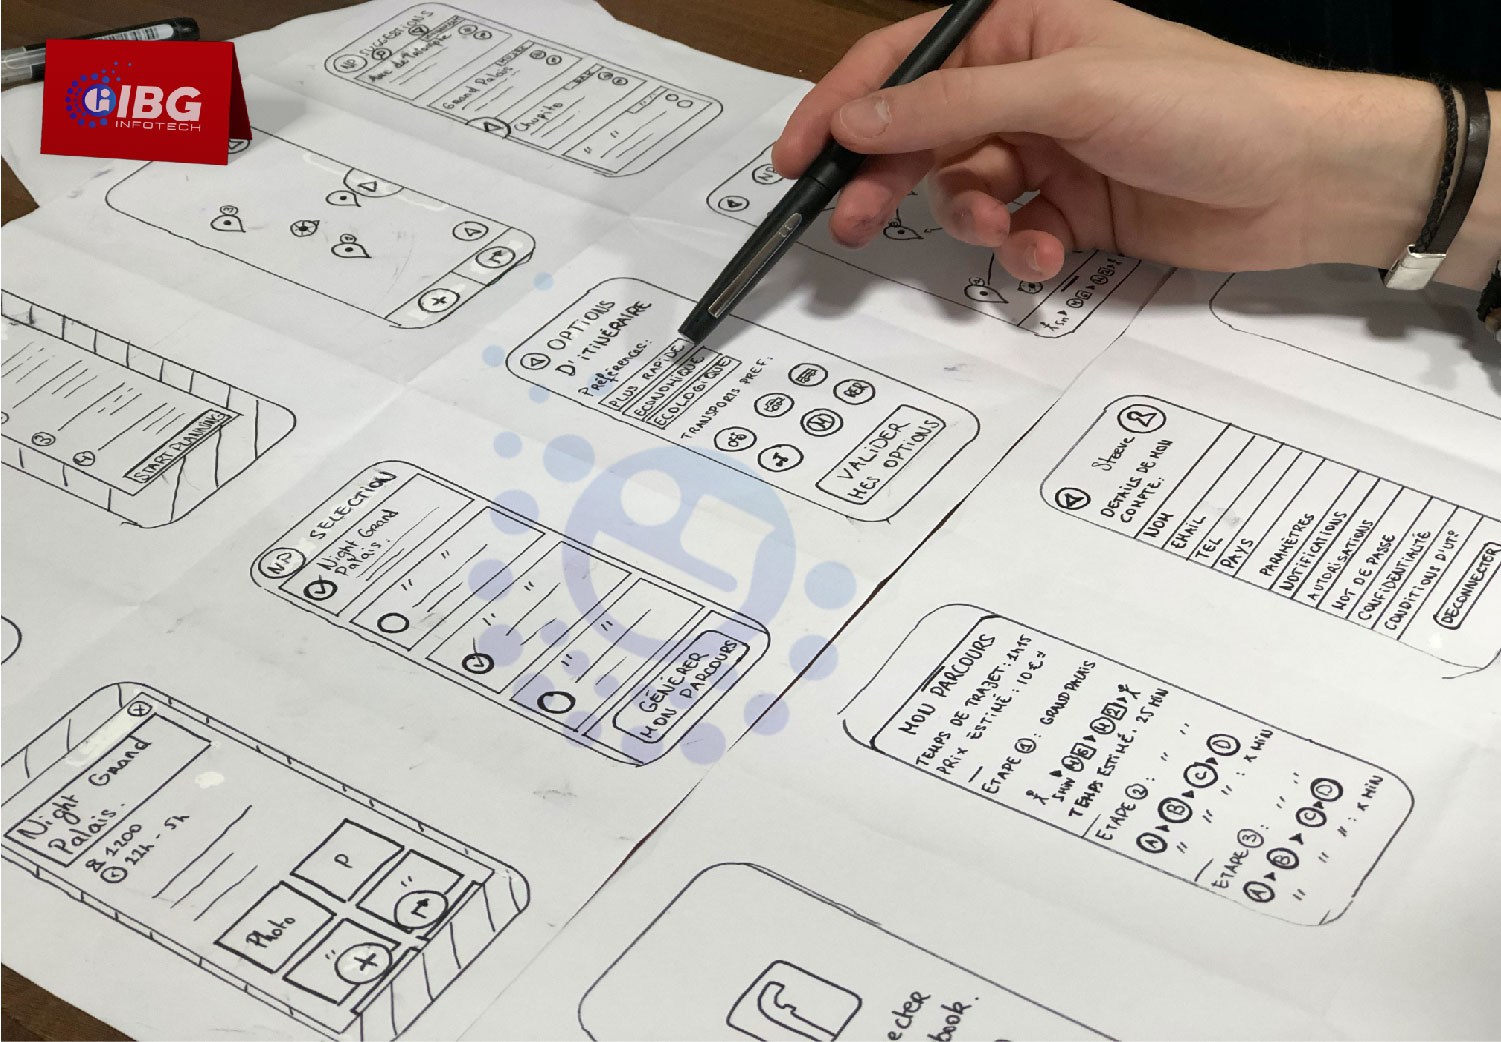 IBG
INFOTECH
NP
SUGGESTIONS
Grand Palais
Chupito
NP
OPTIONS
D'ITINÉRAIRE
Préférences:
PLUS RAPIDE
ECONOMIQUE
ECOLOGIQUE
TRANSPORTS PREF:
RER
VALIDER
MES OPTIONS
3
4
START PLANNING
NP SELECTION
Night Grand
Palais.
GÉNÉRER
MON PARCOURS
Steeve
DETAILS DE MON
COMPTE.
NOM
EMAIL
TEL
PAYS
PARAMÈTRES
NOTIFICATIONS
AUTORISATIONS
MOT DE PASSE
CONFIDENTIALITÉ
CONDITIONS D'UT°
DECONNECTER
MON PARCOURS
TEMPS DE TRAJET: 1H15
PRIX ESTIMÉ: 10€
ETAPE 1: GRAND PALAIS
5MIN
TEMPS ESTIMÉ. 25 MIN
ETAPE 2: " "
A B C D
" " : X MIN
ETAPE 3: " "
A B C D
" " : X MIN
Night Grand
Palais.
1.200
22h - 5h
Photo
P
f
ecter
book.